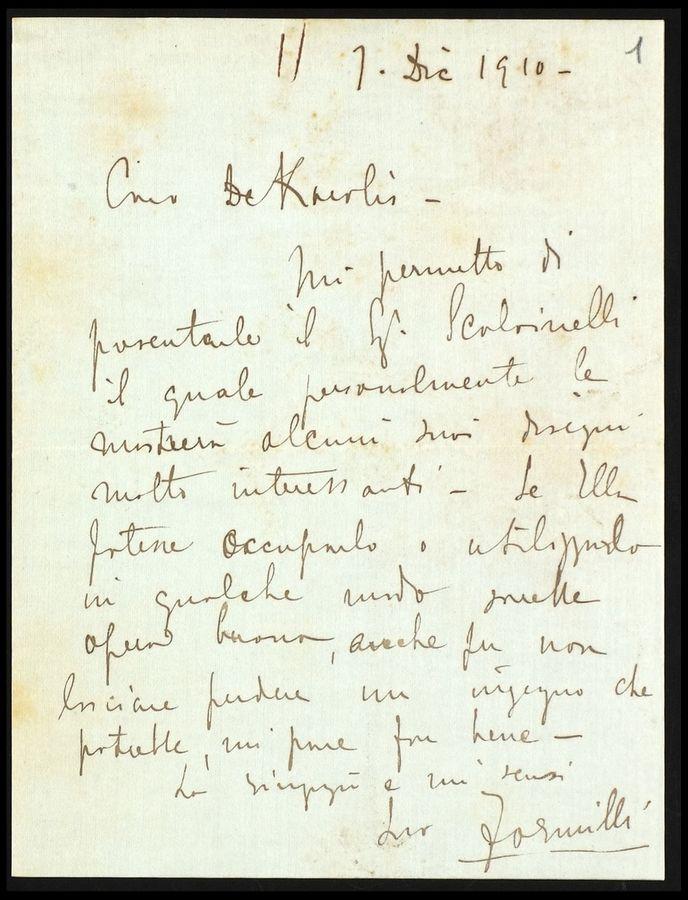 1
7. Dic 1910 -
Caro De Karolis -
Mi permetto di
presentarle il Sg. Scolorinelli
il quale personalmente le
mostrerà alcuni suoi disegni
molto interessanti - Se Ella
potesse occuparlo o utilizzarlo
in qualche modo sarebbe
opera buona, anche per non
lasciare perdere un ingegno che
potrebbe, mi pare far bene -
La ringrazio e mi scusi
Suo